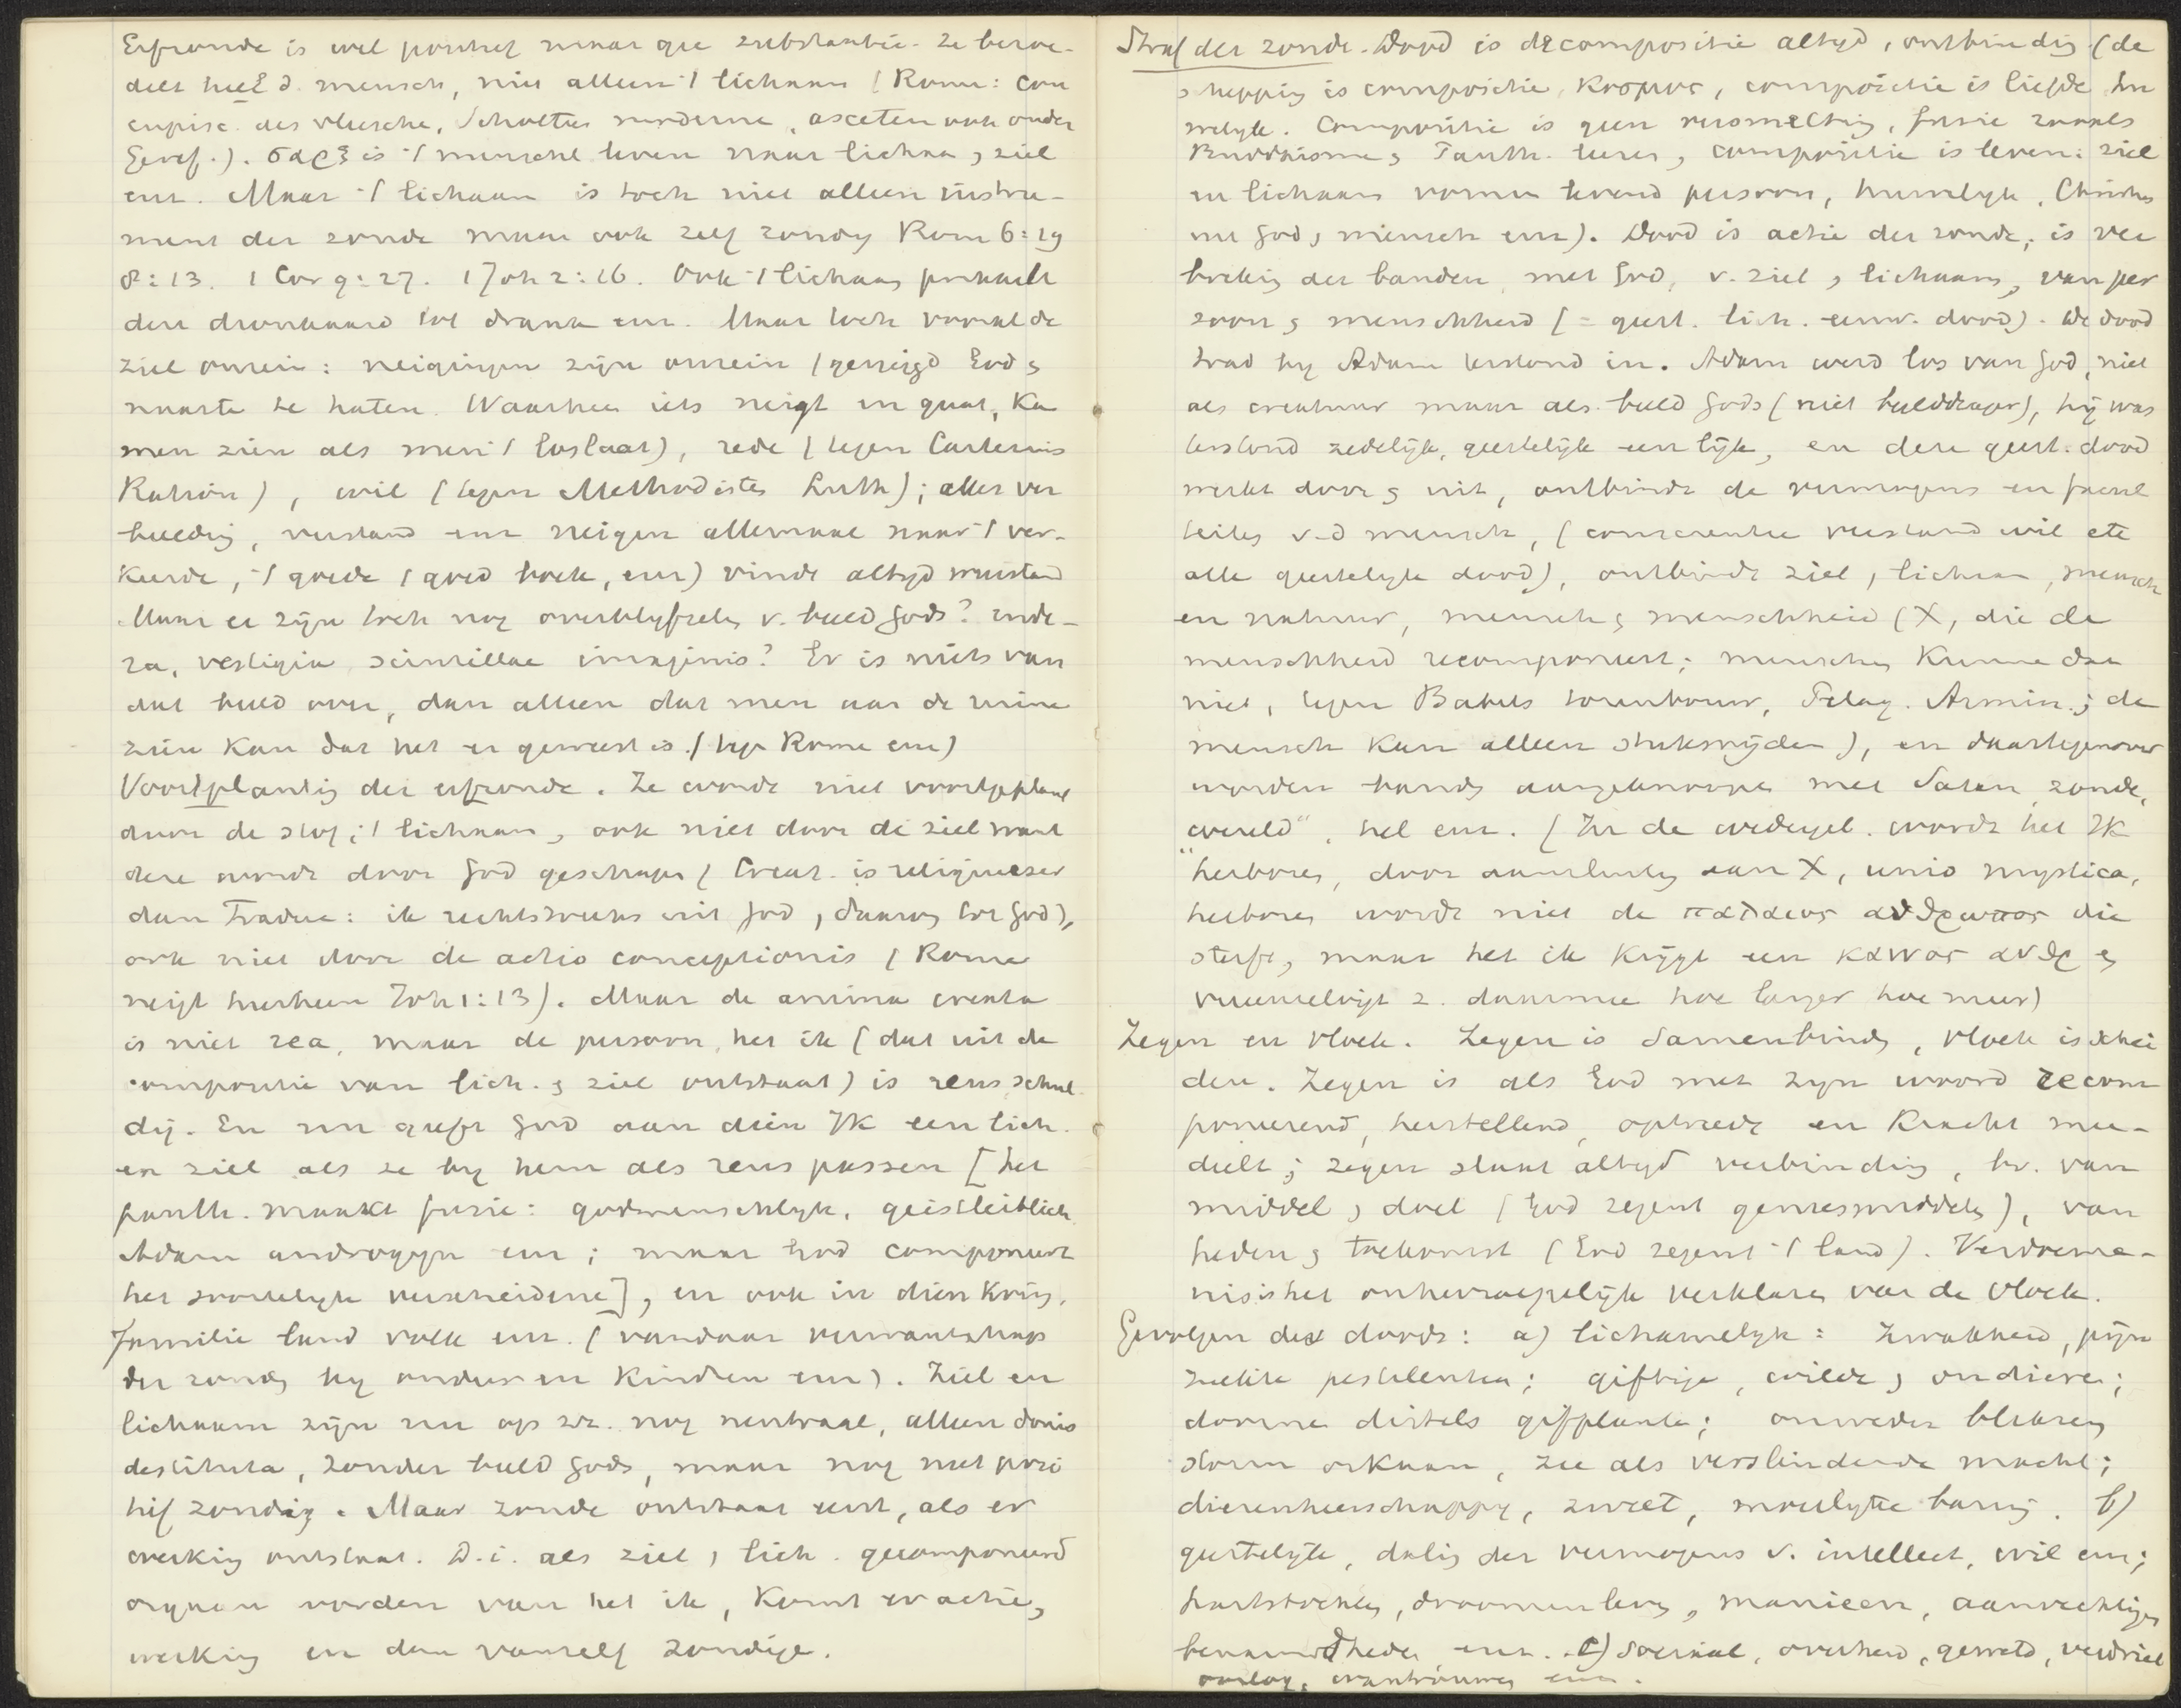 Erfzonde is wel positief maar gee substantie. Ze bezoe-
delt heel d. mensch, niet alleen 't lichaam (Rome: con
cupisc. des vleesche, Scholtens moderne, asceten ook onder
Geref.). σαρξ is 't menschel leven naar lichaa, ziel
enz. Maar 't lichaam is toch niet alleen instru-
ment der zonde maar ook zelf zondig Rom 6:19
8:13. 1 Cor 9:27. 1 Joh 2:16. Ook 't lichaam prikkelt
den dronkaard tot drank enz. Maar toch vooral de
ziel onrein: neigingen zijn onrein (geneigd God &
naaste te haten. Waarheen iets neigt en gaat, ka
men zien als men 't loslaat), rede (tegen Cartesius
Ration), wil (tegen Methodisten Luth); alles ver
beelding, verstand enz neigen allemaal naar 't ver-
keerde, 't goede (goed boek, enz) vindt altyd weerstand
Maar er zijn toch nog overblyfselen v. beeld Gods? rude-
ra, vestigia, scintillae imaginis? Er is niets van
dat beeld over, dan alleen dat men aan de ruine
zien kan dat het er geweest is. (tege Rome enz)
Voortplanting der erfzonde. Ze wordt niet voortgeplant
door de stof, 't lichaam, ook niet door de ziel want
deze wordt door God geschapen (Creat. is religieuzer
dan Traduc: ik rechtstreeks uit God, daarom tot God),
ook niet door de actio conceptionis (Rome
neigt hierheen Joh 1:13). Maar de anima creata
is niet rea, maar de persoon, het ik (dat uit de
compositie van lich. & ziel ontstaat) is reus, schul
dig. En nu geeft God aan dien IK een lich.
en ziel als ze by hem als reus passen [het
panth. maakt fusie: godmenschlyk, geistleiblich
Adam androgyn enz; maar God componeert
het soortelyk verscheidene], en ook in dien kring,
familie land volk enz. (vandaar verwantschap
der zonden by ouders en kindren enz). Ziel en
lichaam zijn nu op zz. nog neutraal, alleen donis
destituta, zonder beeld Gods, maar nog niet posi
tief zondig. Maar zonde ontstaat eerst, als er
werking ontstaat. D.i. als ziel, lich. gecomponeerd
organen worden van het ik, komt er actie,
werking en dan vanzelf zondige.
Straf der zonde. Dood is decompositie altyd, ontbinding (de
schepping is compositie, κοσμος, compositie is liefde hu
welyk. Compositie is geen versmelting, fusie zooals
Buddhisme, Panth. leren, compositie is leven: ziel
en lichaam vormen levend persoon, huwelyk, Christus
uit God & mensch enz). Dood is actie der zonde, is ver
breking der banden, met God, v. ziel & lichaam, van per
soon & menschheid (= geest. lich. eeuw. dood). De dood
trad by Adam terstond in. Adam werd los van God, niet
als creatuur maar als beeld Gods (niet beelddrager), hij was
terstond zedelijk, geestelijk een lijk, en deze geest. dood
werkt door & uit, ontbindt de vermogens en facul
teiten v.d mensch, (conscientie verstand wil etc
alle geestelyk dood), ontbindt ziel, lichaam, mensch
en natuur, mensch & menschheid (X, die de
menschheid recomponeert; menschen kunne dat
niet, tegen Babels torenbouw, Pelag. Armin.; de
mensch kan alleen stuksnijden), en daartegenover
worden banden aangeknoopt met Satan, zonde,
"wereld", hel enz. (In de wedergeb. wordt het IK
herboren, door aansluiting aan X, unio mystica,
herboren wordt niet de παλαιος ανθρωπος die
sterft, maar het ik krijgt een καινος ανθρ &
vereenzelvigt z. daarmee hoe langer hoe meer)
Zegen en vloek. Zegen is samenbinden, vloek is schei
den. Zegen is als God met zyn woord recom
ponerend, herstellend, optreedt en kracht mee-
deelt; zegen staat altyd verbinding, bv. van
middel & doel (God zegent geneesmiddelen), van
heden & toekomst (God zegent 't land). Verdoeme-
nis is het onherroepelijk verklaren van de vloek.
Gevolgen des doods: a) lichamelyk: zwakheid, pijn
ziekte pestilentia; giftige, wilde, ondieren;
doorne distels gifplante; onweder bliksem
storm orkaan, zee als verslindende macht;
dierenheerschappy, zweet, moeilyke baring. b)
geestelyk, daling der vermogens v. intellect, wil enz;
hartstochten, droomenleven, manieen, aanvechtigen
benauwdheden enz. c) sociaal, overheid, geweld, verdriet
oorlog, wantrouwen enz.